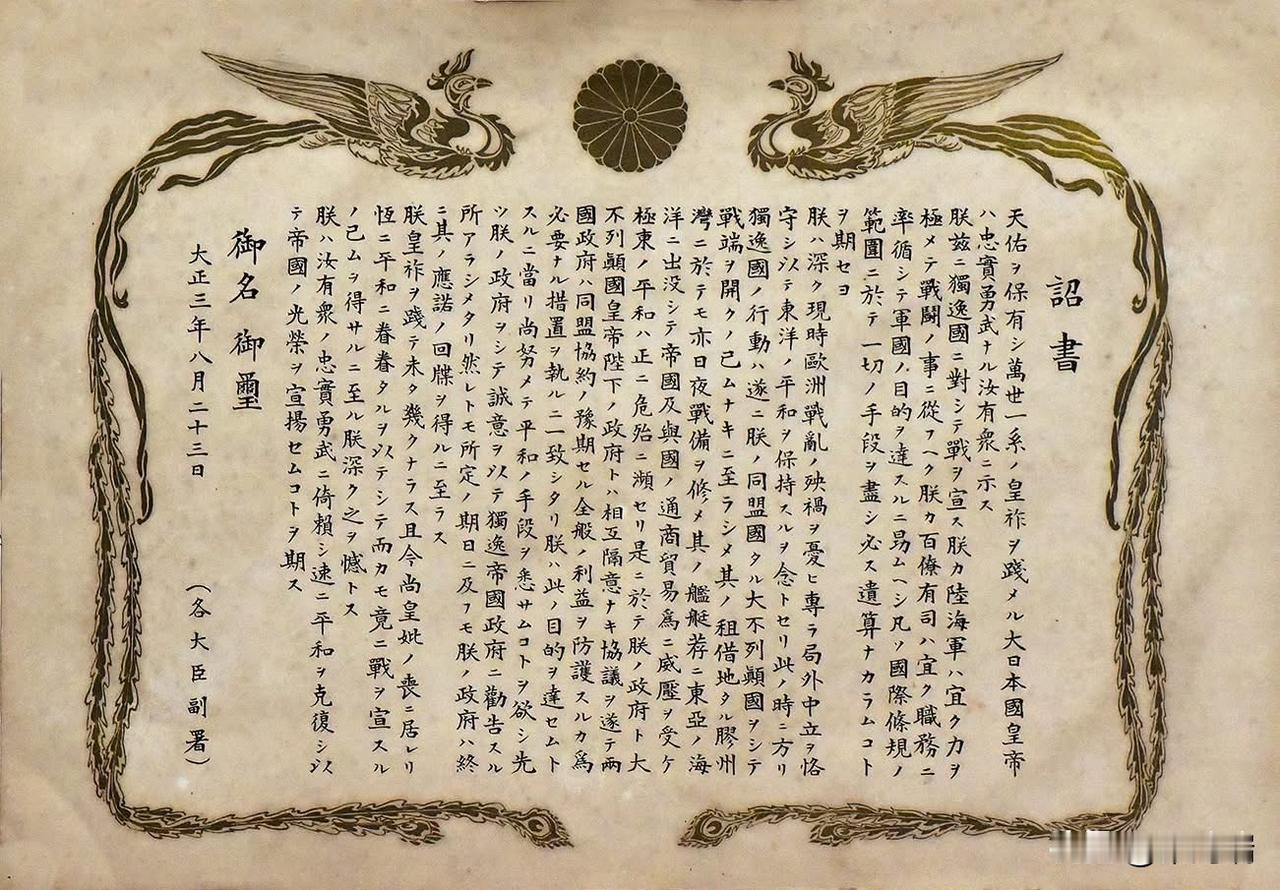 詔書
天佑ヲ保有シ萬世一系ノ皇祚ヲ踐メル大日本國皇帝
ハ忠實勇武ナル汝有衆ニ示ス
朕玆ニ獨逸國ニ對シテ戰ヲ宣ス朕カ陸海軍ハ宜ク力ヲ
極メテ戰鬪ノ事ニ從フヘク朕カ百僚有司ハ宜ク職務ニ
率循シテ軍國ノ目的ヲ達スルニ勗ムヘシ凡ソ國際條規ノ
範圍ニ於テ一切ノ手段ヲ盡シ必ス遺算ナカラムコト
ヲ期セヨ
朕ハ深ク現時歐洲戰亂ノ殃禍ヲ憂ヒ專ラ局外中立ヲ恪
守シ以テ東洋ノ平和ヲ保持スルヲ念トセリ此ノ時ニ方リ
獨逸國ノ行動ハ遂ニ朕ノ同盟國タル大不列顚國ヲシテ
戰端ヲ開クノ已ムナキニ至ラシメ其ノ租借地タル膠州
灣ニ於テモ亦日夜戰備ヲ修メ其ノ艦艇荐ニ東亞ノ海
洋ニ出没シテ帝國及與國ノ通商貿易爲ニ威壓ヲ受ケ
極東ノ平和ハ正ニ危殆ニ瀕セリ是ニ於テ朕ノ政府ト大
不列顚國皇帝陛下ノ政府トハ相互隔意ナキ協議ヲ遂テ兩
國政府ハ同盟協約ノ豫期セル全般ノ利益ヲ防護スルカ爲
必要ナル措置ヲ執ルニ一致シタリ朕ハ此ノ目的ヲ達セムト
スルニ當リ尚努メテ平和ノ手段ヲ悉サムコトヲ欲シ先
ツ朕ノ政府ヲシテ誠意ヲ以テ獨逸帝國政府ニ勸告スル
所アラシメタリ然レトモ所定ノ期日ニ及フモ朕ノ政府ハ終
ニ其ノ應諾ノ回牒ヲ得ルニ至ラス
朕皇祚ヲ踐テ未タ幾クナラス且今尚皇妣ノ喪ニ居レリ
恆ニ平和ニ眷眷タルヲ以テシテ而カモ竟ニ戰ヲ宣スル
ノ已ムヲ得サルニ至ル朕深ク之ヲ憾トス
朕ハ汝有衆ノ忠實勇武ニ倚賴シ速ニ平和ヲ克復シ以
テ帝國ノ光榮ヲ宣揚セムコトヲ期ス
御名御璽
大正三年八月二十三日
(各大臣副署)